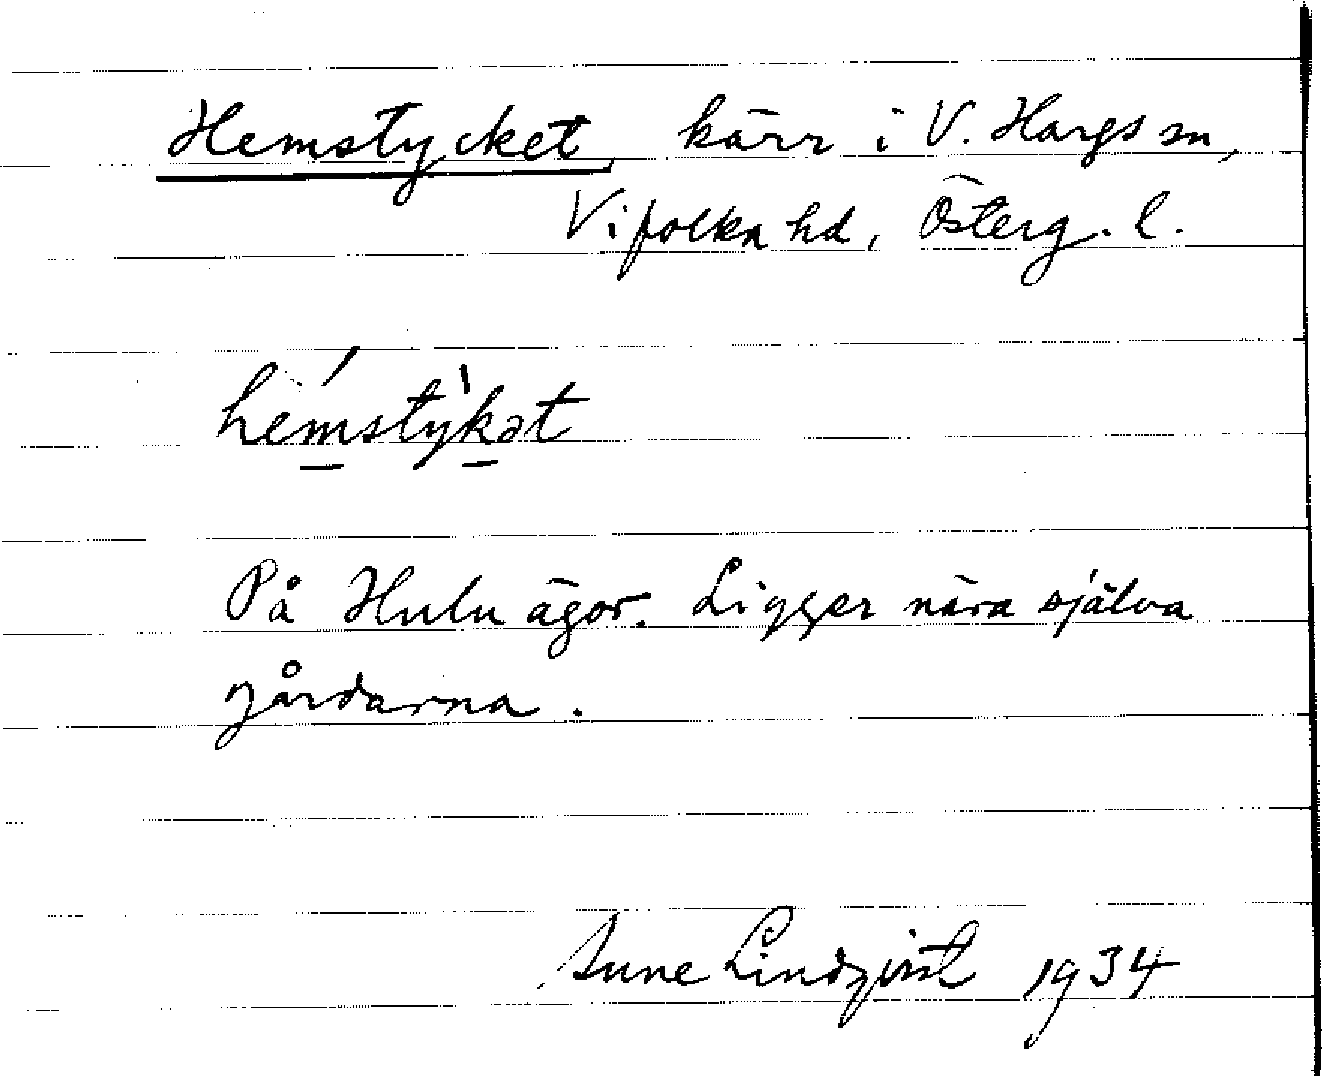 Hemstycket, kärr i V. Hargs sn,
Vifolka hd, Österg. l.
hemstykət
På Hulu ägor. Ligger nära själva
gårdarna.
Sune Lindqvist 1934